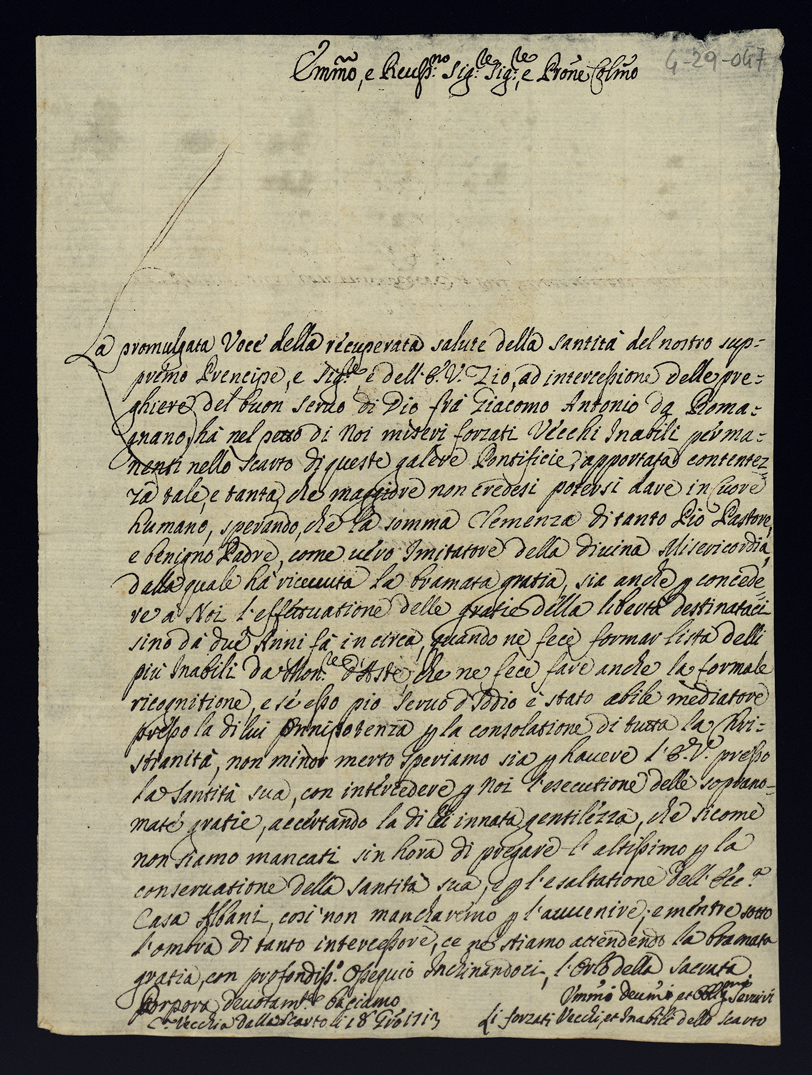 4-29-047
Emmo, e Reuss.mo Sig.re Sig.re, e Prone Colmo
La promulgata Voce della recuperata salute della santità del nostro sup-
premo Prencipe, e Sig.re, e dell'E.V. Zio, ad intercessione delle pre-
ghiere del buon seruo di Dio frà Giacomo Antonio da Roma-
gnano, hà nel petto di Noi miseri forzati Vecchi Inabili perma-
nenti nello Scarto di queste galere Pontificie, apportata contentez-
za tale, e tanta, che maggiore non credesi potersi dare in Cuore
humano, sperando, che la somma Clemenza di tanto Pio Pastore,
e benigno Padre, come uero Imitatore della diuina Misericordia,
dalla quale hà riceuuta la bramata gratia, sia anche p concede-
re a Noi l'effettuatione delle gratie della libertà destinataci
sino da due Anni fà in circa, quando ne fece formar lista delli
più Inabili da Mon.re d'Aste, che ne fece fare anche la formale
ricognitione, e se esso pio seruo d'Iddio è stato abile mediatore
presso la di lui Onnipotenza p la consolatione di tutta la Chri-
stianità, non minor merto speriamo sia p hauere l'E.V. presso
la Santità sua, con intercedere p Noi l'esecutione delle soprano-
mate gratie, accertando la di lei innata gentilezza, che sicome
non siamo mancati sin hora di pregare l'altissimo p la
conseruatione della santità sua, e p l'esaltatione dell'Ecc.a
Casa Albani, così non mancharemo p l'auuenire; e mentre sotto
l'ombra di tanto intercessore, ce ne stiamo attendendo la bramata
gratia, con profondiss.o ossequio Inchinandoci, l'Orlo della sacrata
Porpora deuotam.te baciamo
C.a Vecchia dallo Scarto li 18 Giu.o 1713
Ummi Deumi et Obblig.mi Seruiri
Li forzati Vecchi, et Inabili dello Scarto